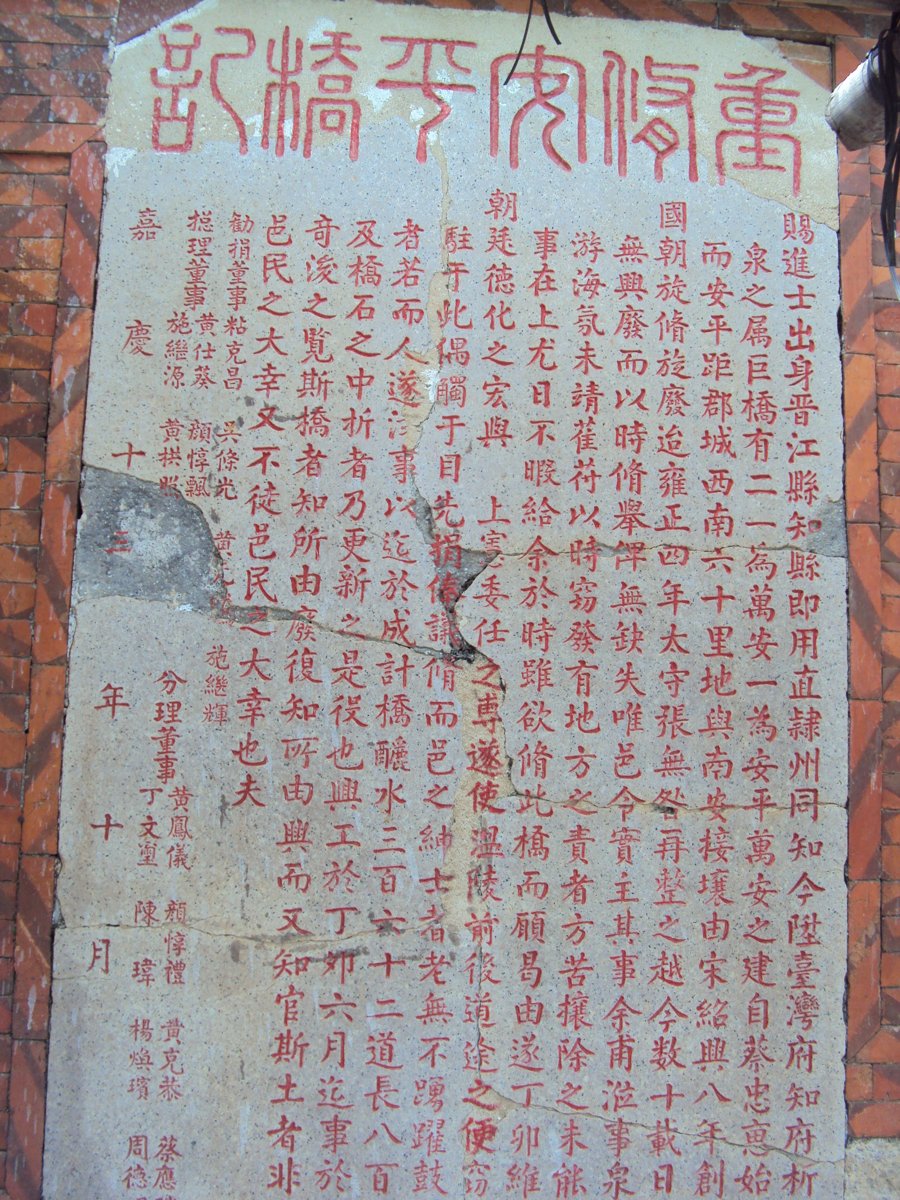 重脩安平橋記
賜進士出身晋江縣知縣即用直隸州同知今陞臺灣府知府析
泉之属巨橋有二一為萬安一為安平萬安之建自蔡忠惠始
而安平距郡城西南六十里地與南安接壤由宋紹興八年創
國朝旋脩旋廢迨雍正四年太守張無咎再整之越今数十載日
無興廢而以時脩舉俾無缺失唯邑令實主其事余甫涖事泉
游海氛未請萑苻以時窃發有地方之責者方苦攘除之未能
事在上尤日不暇給余於時雖欲脩此橋而願曷由遂丁卯維
朝廷德化之宏與 上憲委任之専遂使温陵前後道途之便窃
駐于此偶觸于目先捐俸議脩而邑之紳士耆老無不踴躍鼓
者若而人遂事以迄於成計橋釃水三百六十二道長八百
及橋石之中折者乃更新之是役也興工於丁夘六月迄事於
奇浚之覧斯橋者知所由廢復知所由興而又知官斯土者非
邑民之大幸又不徒邑民之大幸也夫
勸捐董事粘克昌 吳條光 黄 施繼輝
捴理董事黄仕葵 顏惇飄
施繼源 黄拱
分理董事黄鳳儀 顏惇禮 黄克恭 蔡應
丁文璽 陳瑋 楊煥璸 周德
嘉慶十三年十月